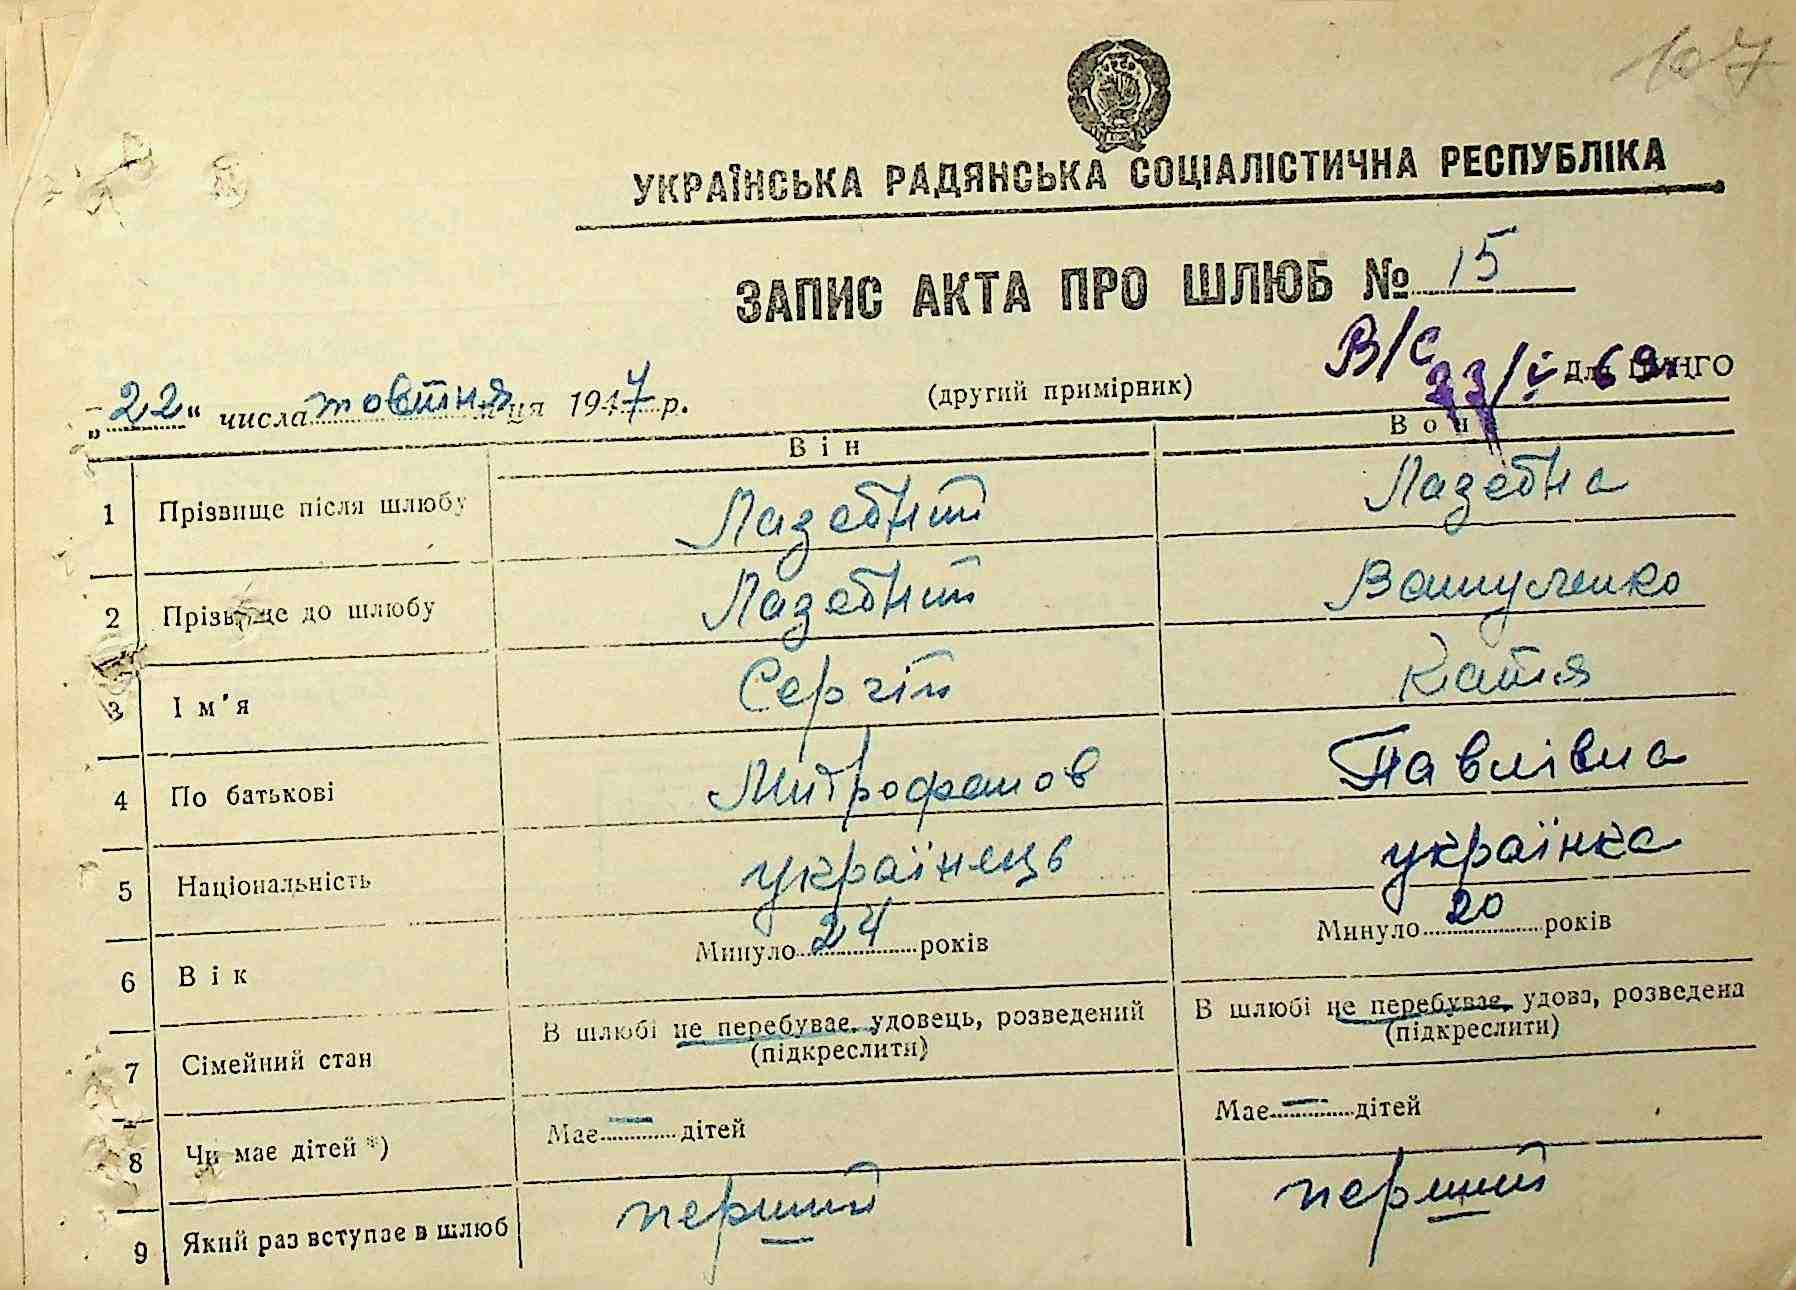 107
УКРАЇНСЬКА РАДЯНСЬКА СОЦІАЛІСТИЧНА РЕСПУБЛІКА
ЗАПИС АКТА ПРО ШЛЮБ № 15
В/С 23/і-69
„22" числа жовтня м-ця 1947 р. (другий примірник) для ЦИНГО
Він Вона
1 Прізвище після шлюбу Лазебний Лазебна
2 Прізвище до шлюбу Лазебний Вакуленко
3 Ім'я Сергій Катя
4 По батькові Митрофанов Павлівна
5 Національність українець українка
6 Вік Минуло 24 років Минуло 20 років
7 Сімейний стан В шлюбі не перебуває, удовець, розведений (підкреслити) В шлюбі не перебуває, удова, розведена (підкреслити)
8 Чи має дітей *) Має — дітей Має — дітей
9 Який раз вступає в шлюб перший перший